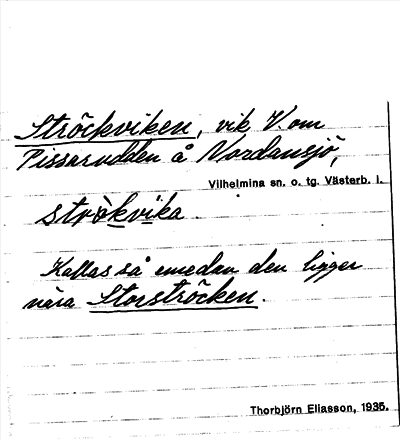 Ströckviken, vik V. om
Pissarudden å Nordansjö,
Vilhelmina sn. o. tg. Västerb. l.
strò̀kvi̱ka.
Kallas så emedan den ligger
nära Storströcken.
Thorbjörn Eliasson, 1935.